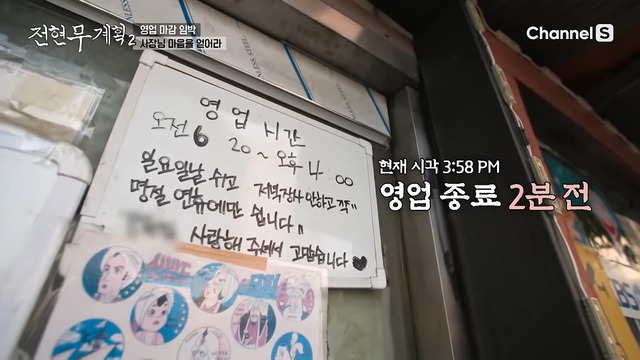 전현무계획2
영업 마감 임박
사장님 마음을 얻어라
Channel S
영업시간
오전 6 20 ~ 오후 4 00
일요일날 쉬고 저녁장사 안하고
명절 연휴에만 쉽니다"
사랑해 주셔서 고맙습니다 ♥
현재 시각 3:58 PM
영업 종료 2분 전